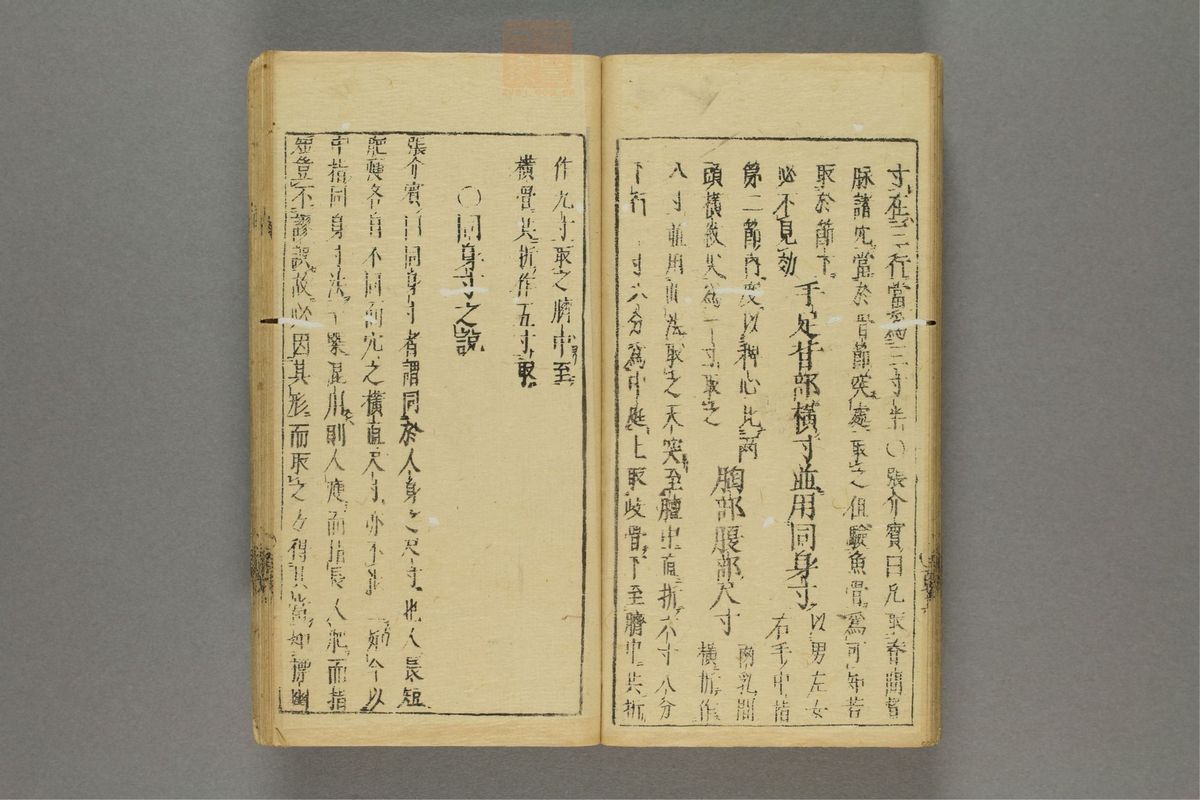 寸在三行當三寸半〇張介賓曰凡取脊間督
脉諸穴當於骨節突處取之但驗魚骨爲可知若
取於節下必不見効
手足部橫寸並用同身寸
以男左女右手中指
第二節內度以稗心比兩頭橫紋尖爲一寸取之
胸部腹部尺寸
兩乳間橫折作
八寸並用此法取之天突至膻中直折六寸八分
下行一寸六分爲中庭上取歧骨下至臍中共折
作九寸取之臍中至
橫骨共折作五寸取
〇同身寸之說
張介賓曰同身寸者謂同於人身之尺寸也人長短
肥瘦各自不同而穴之橫直尺寸亦不能一如今以
中指同身寸法一槩混用則人瘦而指長人肥而指
短豈不謬誤故必因其形而取之方得其當如標幽